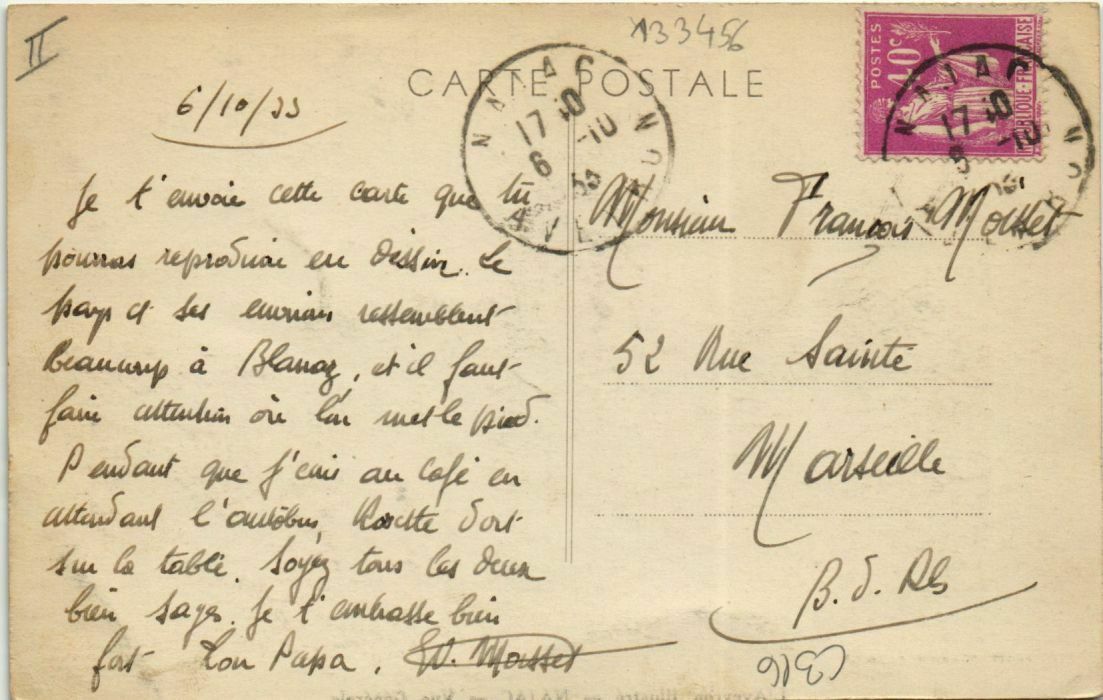 II
133456
CARTE POSTALE
POSTES
40c
REPUBLIQUE-FRANÇAISE
NAJAC
17 10
6 -10
33
AVEYRON
NAJAC
17 10
6 -10
6/10/33
Je t'envoie cette carte que tu
pourras reproduire en dessin. Le
pays et ses environs ressemblent
beaucoup à, et il faut
faire attention où l'on met le pied.
Pendant que j'écris au café en
attendant l'autobus Rosette dort
sur la table. Soyez tous les deux
bien sages. Je t'embrasse bien
fort Ton Papa. W. Mousset
Monsieur François Mousset
52 Rue Sainte
Marseille
B. d. Rh
CB16
L'Aveyron illustré — NAJAC — Vue Générale